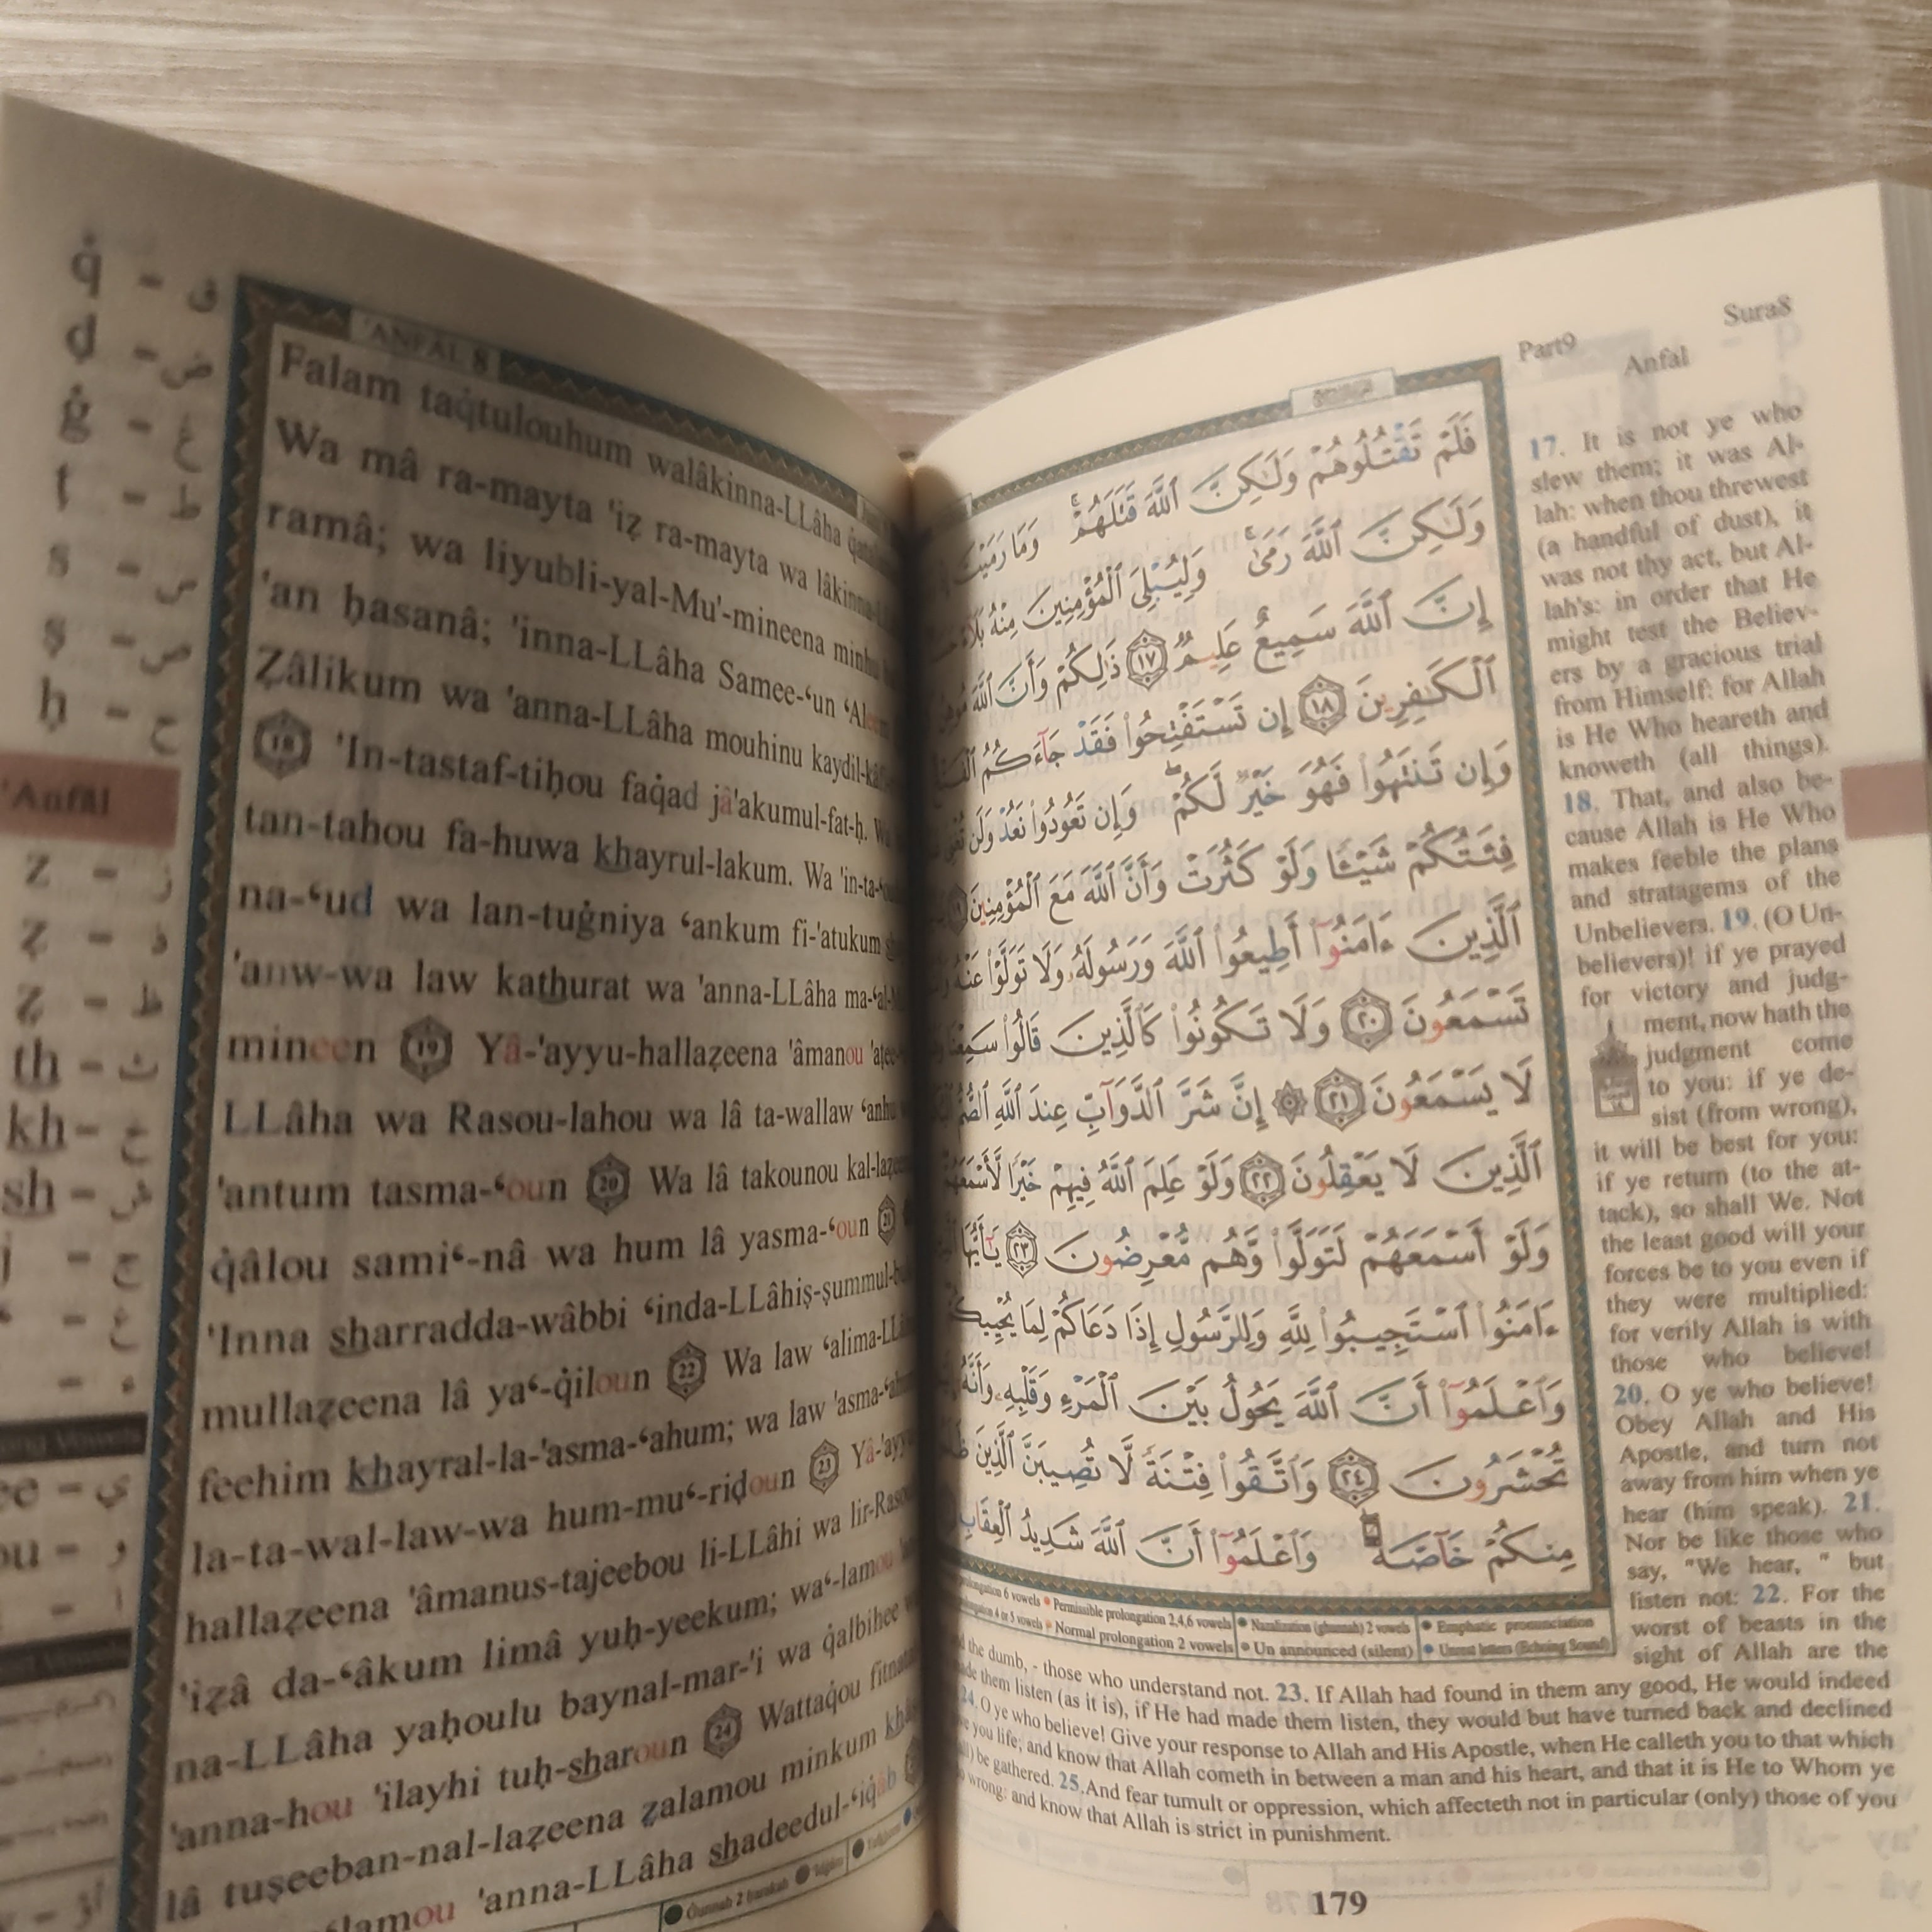 q̇ - ق
ḍ - ض
ġ - غ
ṭ - ط
s - س
ṣ - ص
ḥ - ح
'Anfāl
z - ز
ẓ - ذ
ẓ - ظ
th - ث
kh - خ
sh - ش
j - ج
ee - ي
ou - و
'ANFÂL 8
Falam taq̇tulouhum walâkinna-LLâha
Wa mâ ra-mayta 'iẓ ra-mayta wa lâkinna
ramâ; wa liyubli-yal-Mu'-mineena minhu
'an ḥasanâ; 'inna-LLâha Samee-‘un
Ẓâlikum wa 'anna-LLâha mouhinu
18 'In-tastaf-tiḥou faq̇ad jâ'akumul-fat-ḥ.
tan-tahou fa-huwa khayrul-lakum. Wa
na-‘ud wa lan-tuġniya ‘ankum fi-'atukum
'anw-wa law kathurat wa 'anna-LLâha
mineen 19 Yâ-'ayyu-hallaẓeena 'âmanou
LLâha wa Rasou-lahou wa lâ ta-wallaw
'antum tasma-‘oun 20 Wa lâ takounou
q̇âlou sami‘-nâ wa hum lâ yasma-‘oun 21
'Inna sharradda-wâbbi ‘inda-LLâhiṣ-ṣummul
mullaẓeena lâ ya‘-q̇iloun 22 Wa law
feehim khayral-la-'asma-‘ahum; wa law
la-ta-wal-law-wa hum-mu‘-riḍoun 23
hallaẓeena 'âmanus-tajeebou li-LLâhi wa
'iẓâ da-‘âkum limâ yuḥ-yeekum;
na-LLâha yaḥoulu baynal-mar-'i wa q̇albihee
'anna-hou 'ilayhi tuḥ-sharoun 24 Wattaq̇ou
lâ tuṣeeban-nal-laẓeena ẓalamou minkum
'anna-LLâha shadeedul-‘iq̇âb
فَلَمْ تَقْتُلُوهُمْ وَلَٰكِنَّ ٱللَّهَ قَتَلَهُمْ ۚ وَمَا رَمَيْتَ
وَلَٰكِنَّ ٱللَّهَ رَمَىٰ ۚ وَلِيُبْلِيَ ٱلْمُؤْمِنِينَ مِنْهُ بَلَآءً
إِنَّ ٱللَّهَ سَمِيعٌ عَلِيمٌ ١٧ ذَٰلِكُمْ وَأَنَّ ٱللَّهَ
ٱلْكَٰفِرِينَ ١٨ إِن تَسْتَفْتِحُوا۟ فَقَدْ جَآءَكُمُ
وَإِن تَنتَهُوا۟ فَهُوَ خَيْرٌ لَّكُمْ ۖ وَإِن تَعُودُوا۟ نَعُدْ وَلَن
فِئَتُكُمْ شَيْـًٔا وَلَوْ كَثُرَتْ وَأَنَّ ٱللَّهَ مَعَ ٱلْمُؤْمِنِينَ
ٱلَّذِينَ ءَامَنُوٓا۟ أَطِيعُوا۟ ٱللَّهَ وَرَسُولَهُۥ وَلَا تَوَلَّوْا۟ عَنْهُ
تَسْمَعُونَ ٢٠ وَلَا تَكُونُوا۟ كَٱلَّذِينَ قَالُوا۟
لَا يَسْمَعُونَ ٢١ ۞ إِنَّ شَرَّ ٱلدَّوَآبِّ عِندَ ٱللَّهِ
ٱلَّذِينَ لَا يَعْقِلُونَ ٢٢ وَلَوْ عَلِمَ ٱللَّهُ فِيهِمْ خَيْرًا لَّأَسْمَعَهُمْ
وَلَوْ أَسْمَعَهُمْ لَتَوَلَّوا۟ وَّهُم مُّعْرِضُونَ ٢٣ يَٰٓأَيُّهَا
ءَامَنُوا۟ ٱسْتَجِيبُوا۟ لِلَّهِ وَلِلرَّسُولِ إِذَا دَعَاكُمْ لِمَا
وَٱعْلَمُوٓا۟ أَنَّ ٱللَّهَ يَحُولُ بَيْنَ ٱلْمَرْءِ وَقَلْبِهِۦ وَأَنَّهُۥٓ
تُحْشَرُونَ ٢٤ وَٱتَّقُوا۟ فِتْنَةً لَّا تُصِيبَنَّ ٱلَّذِينَ
مِنكُمْ خَآصَّةً ۖ وَٱعْلَمُوٓا۟ أَنَّ ٱللَّهَ شَدِيدُ ٱلْعِقَابِ
prolongation 6 vowels • Permissible prolongation 2,4,6 vowels • Nazalization (ghunnah) 2 vowels • Emphatic pronunciation
4 or 5 vowels • Normal prolongation 2 vowels • Un announced (silent) • Unrest letters (Echoing Sound)
Part9 Sura8
Anfâl
17. It is not ye who
slew them; it was Al-
lah: when thou threwest
(a handful of dust), it
was not thy act, but Al-
lah's: in order that He
might test the Believ-
ers by a gracious trial
from Himself: for Allah
is He Who heareth and
knoweth (all things).
18. That, and also be-
cause Allah is He Who
makes feeble the plans
and stratagems of the
Unbelievers. 19. (O Un-
believers)! if ye prayed
for victory and judg-
ment, now hath the
judgment come
to you: if ye de-
sist (from wrong),
it will be best for you:
if ye return (to the at-
tack), so shall We. Not
the least good will your
forces be to you even if
they were multiplied:
for verily Allah is with
those who believe!
20. O ye who believe!
Obey Allah and His
Apostle, and turn not
away from him when ye
hear (him speak). 21.
Nor be like those who
say, "We hear, " but
listen not: 22. For the
worst of beasts in the
sight of Allah are the
the dumb, - those who understand not. 23. If Allah had found in them any good, He would indeed
made them listen (as it is), if He had made them listen, they would but have turned back and declined
24. O ye who believe! Give your response to Allah and His Apostle, when He calleth you to that which
you life; and know that Allah cometh in between a man and his heart, and that it is He to Whom ye
be gathered. 25.And fear tumult or oppression, which affecteth not in particular (only) those of you
wrong: and know that Allah is strict in punishment.
179